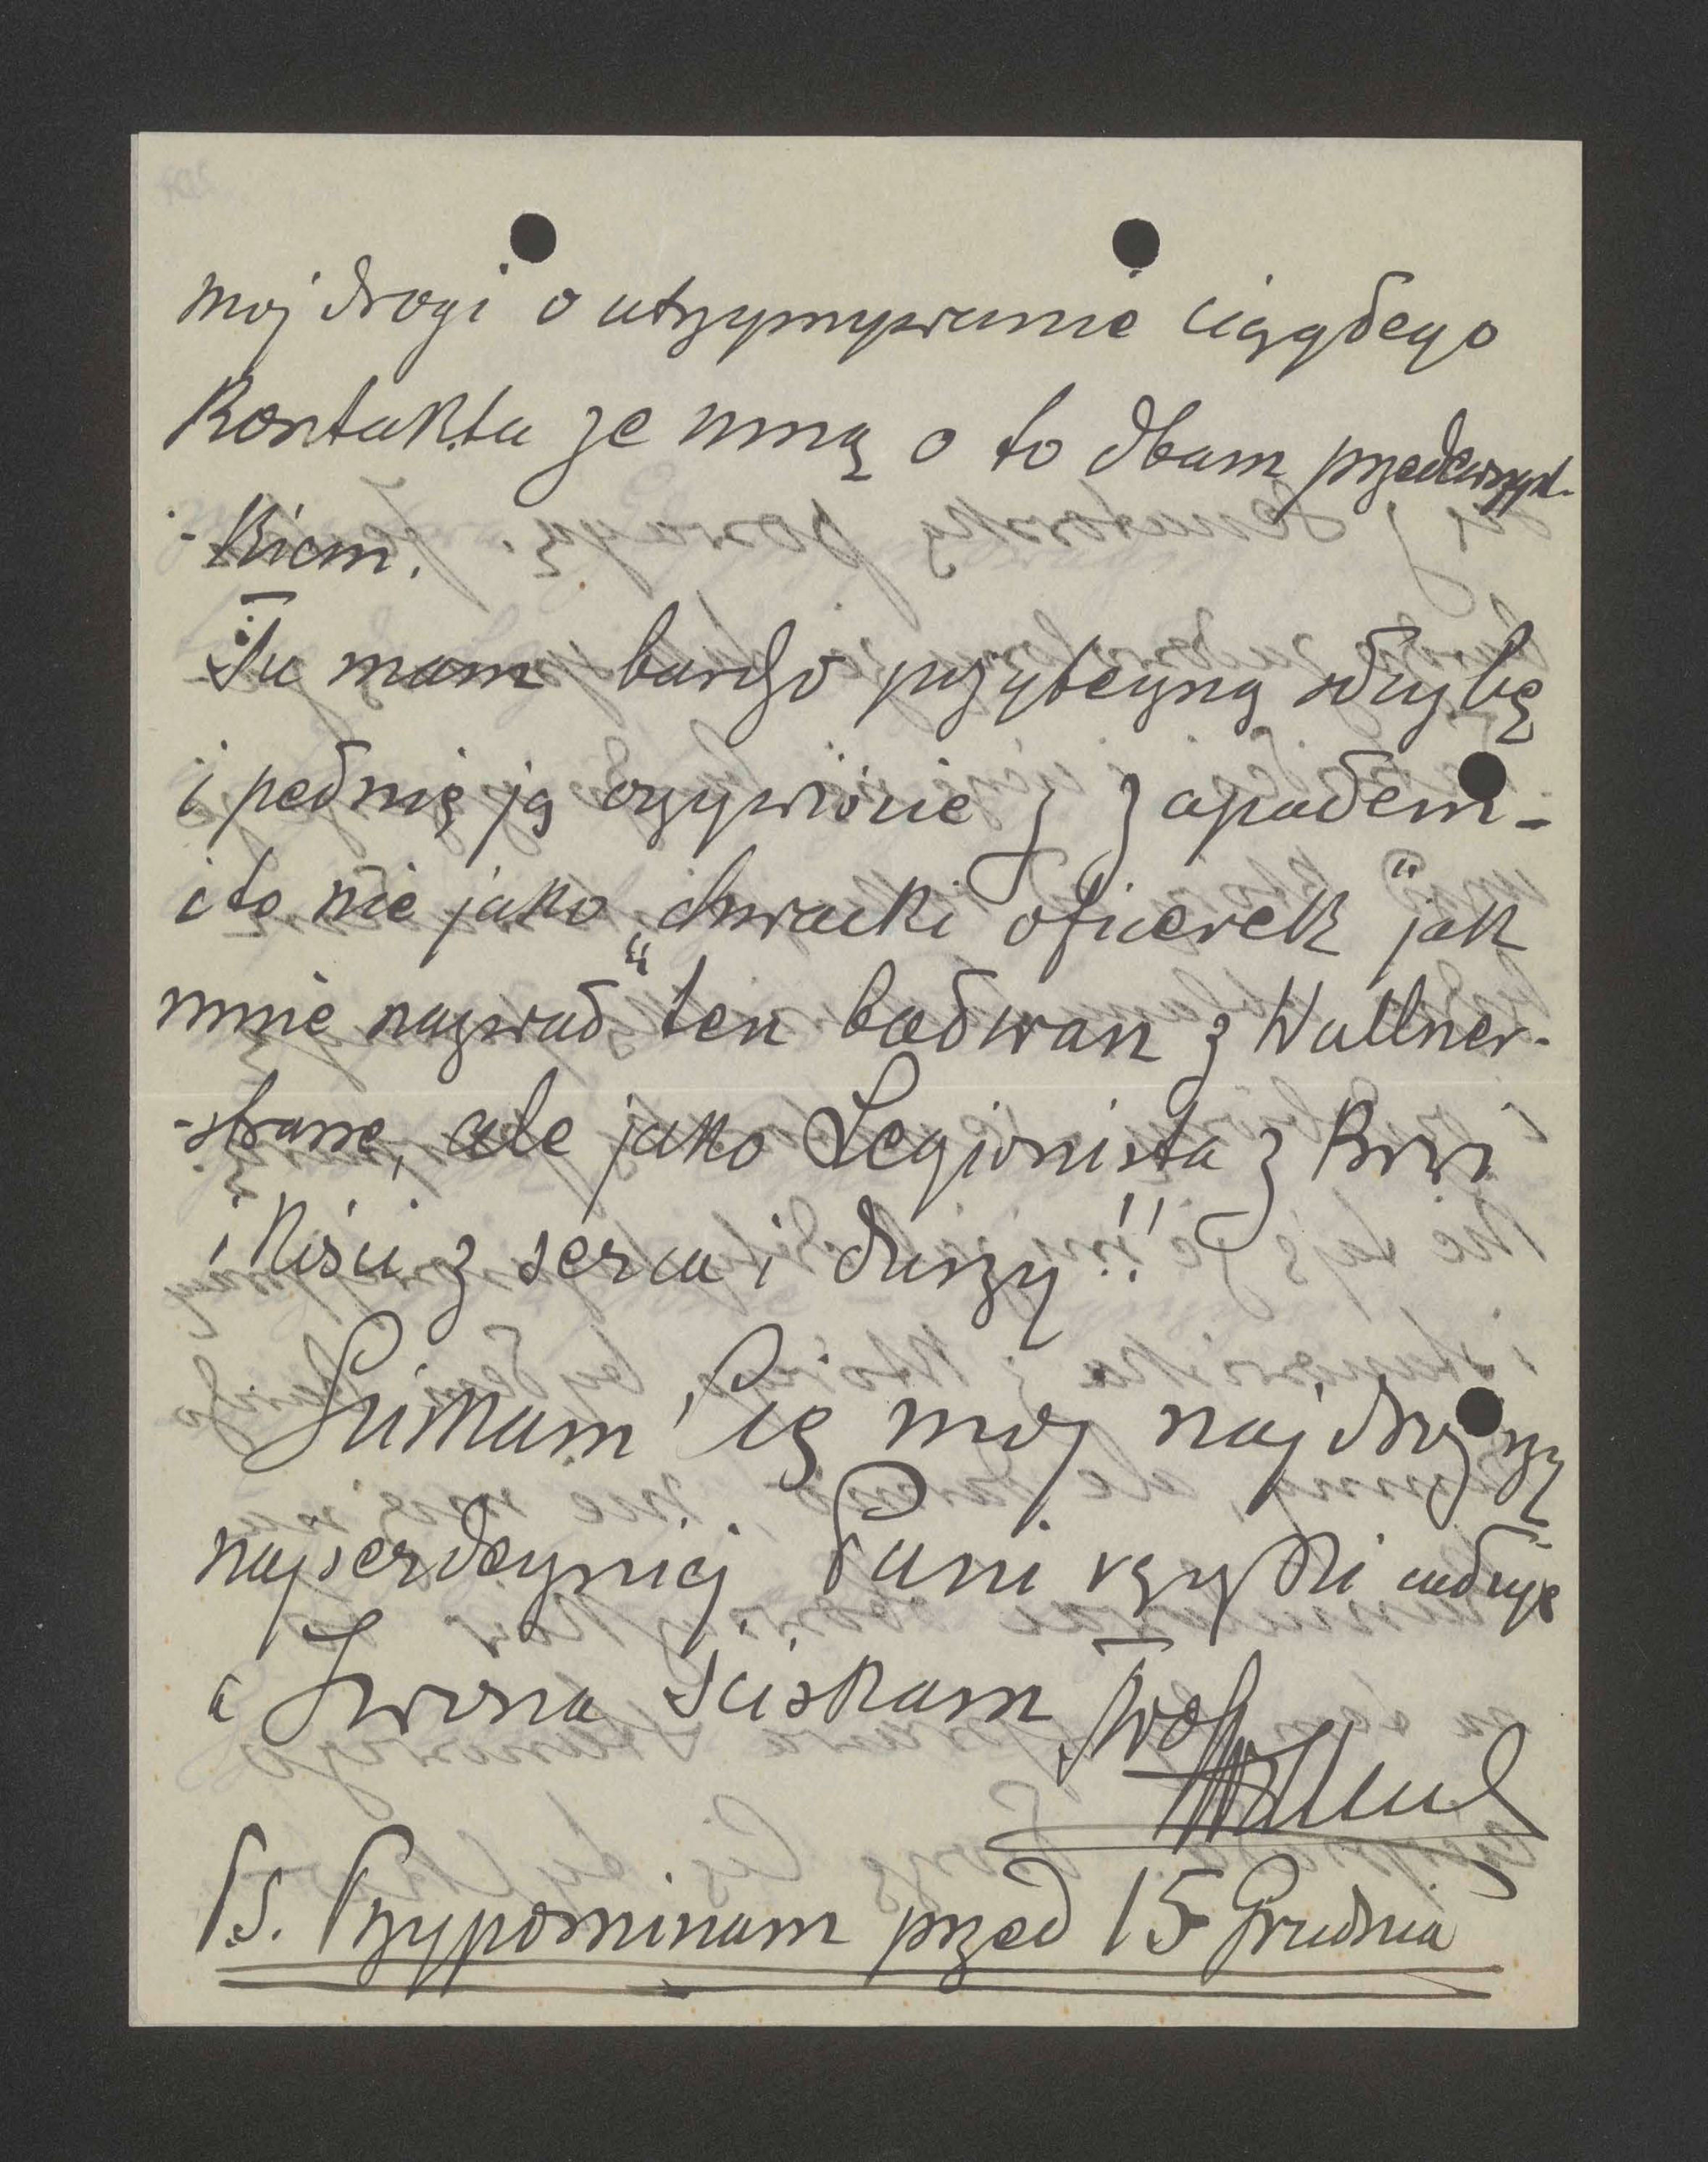 moj drogi o utrzymywanie ciągłego
Kontaktu ze mną o to dbam przedewszyst-
-kiem.
Tu mam bardzo pożyteczną służbę
i pełnię ją oczywiście z zapałem -
i to nie jako „chwacki oficerek" jak
mnie nazwał ten bałwan z Wallner-
-strasse, ale jako Legionista z Krwi
i Kości z serca i duszy!!
Ściskam Cię moj najdroższy
najserdeczniej Pani rączki całuję
a Iwona ściskam Twój
Ps. Przypominam przed 15 Grudnia